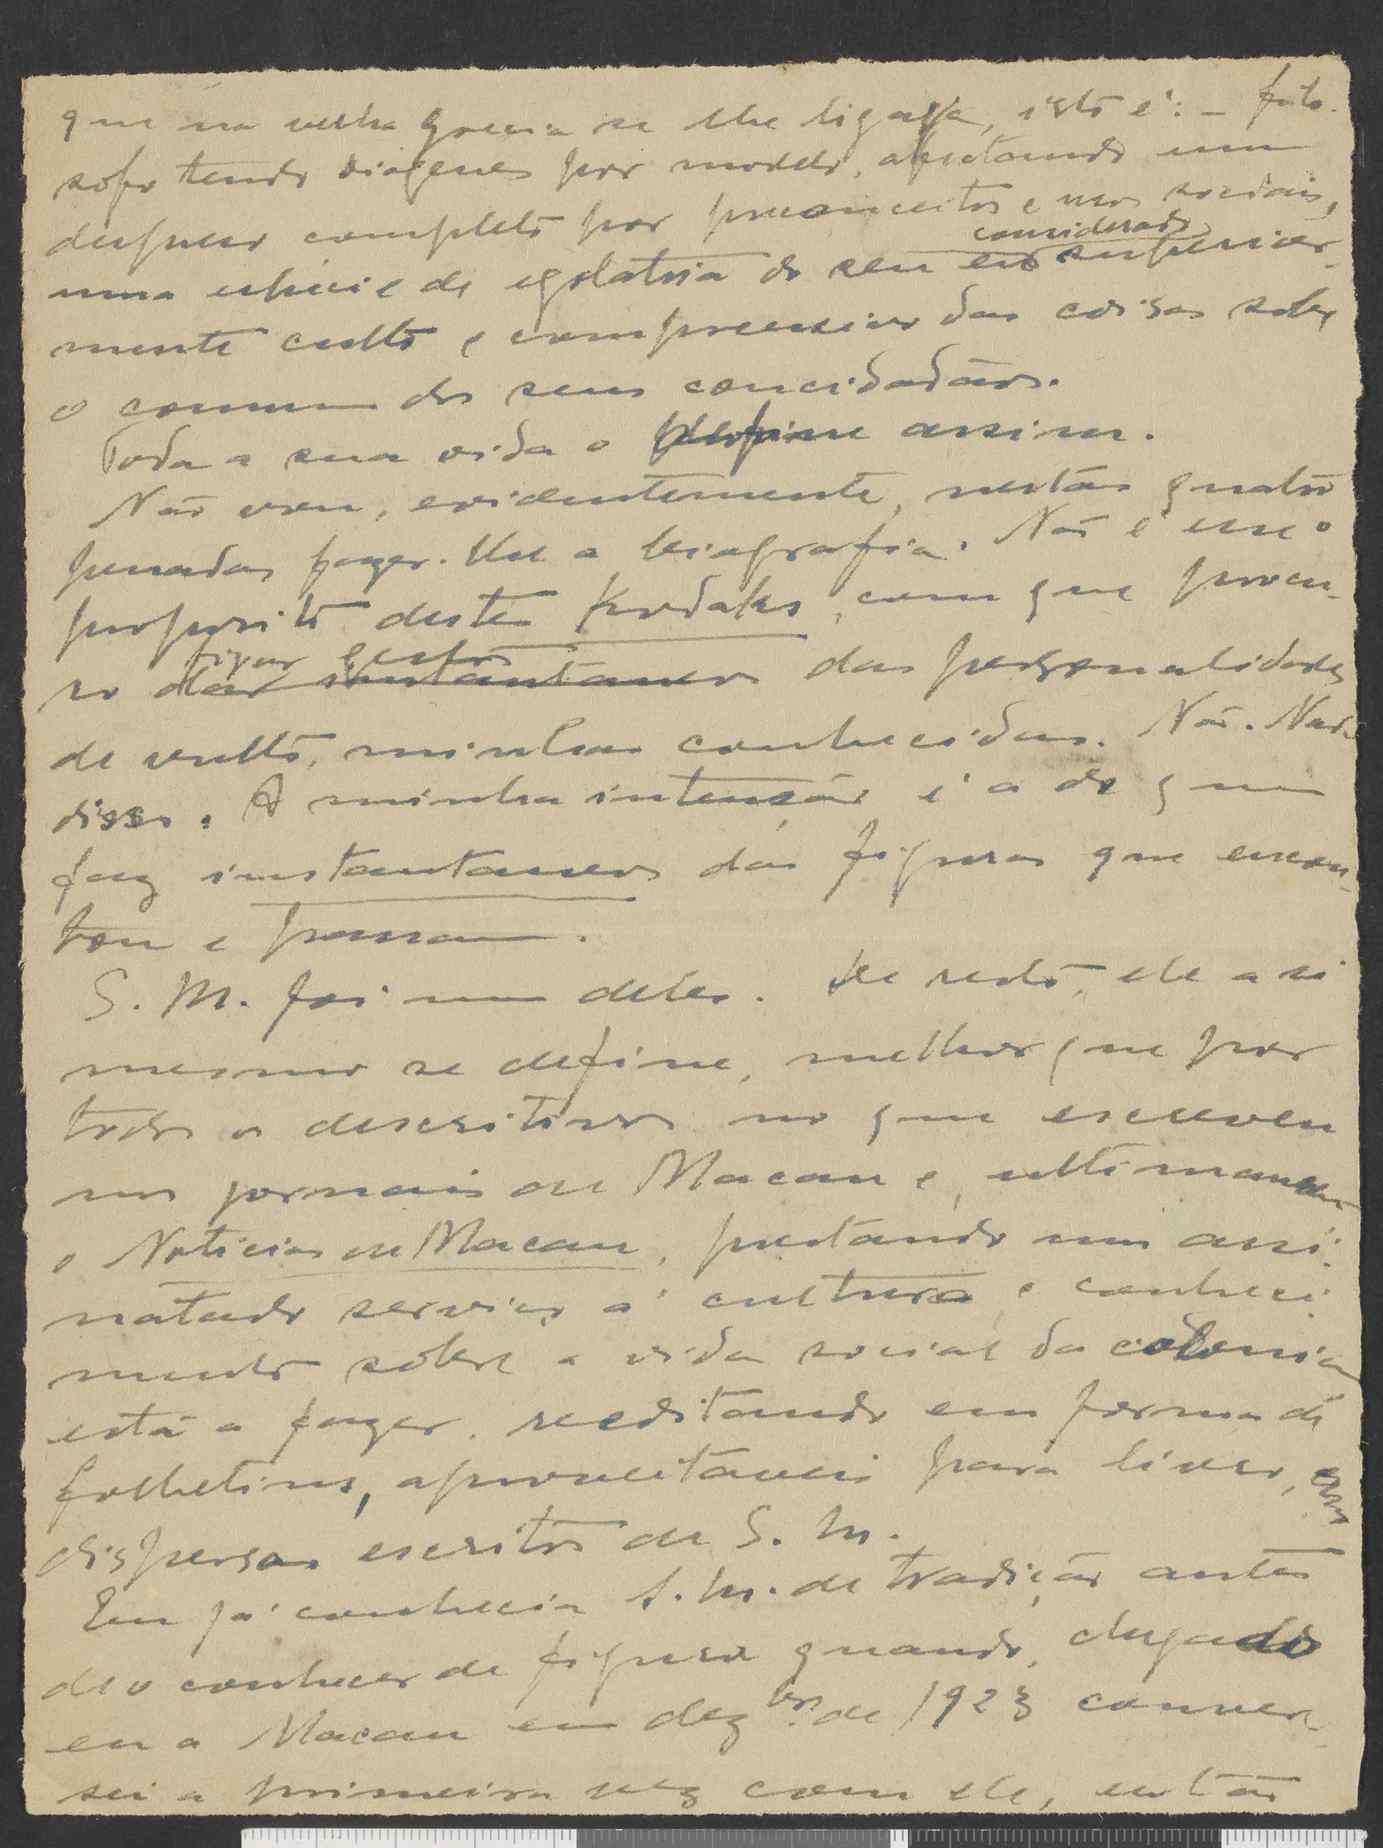 que na velha Grecia se lhe ligava, isto é: – filo-
sofo tendo Diogenes por modelo, afectando um
despreso completo por preconceitos e usos sociais,
uma especie de egolatria do seu eu considerado superior-
mente culto e compreensivo das coisas sobre
o comum dos seus concidadãos.
Toda a sua vida o define assim.
Não vou, evidentemente, nestas quatro
penadas fazer-lhe a biografia. Não é esse o
proposito destes Kodaks, com que procu-
ro fixar gestos das personalidades
de vulto, minhas conhecidas. Não. Nada
disso. A minha intenção é a de quem
faz instantaneos das figuras que encon-
trou e passaram.
S. M. foi um deles. De resto, ele a si
mesmo se define, melhor que por
todos os descritivos no que escreveu
nos jornais de Macau e, ultimamente
o Noticias de Macau, prestando um assi-
nalado serviço á cultura e conheci-
mento sôbre a vida social da colonia
está a fazer, reeditando em forma de
folhetins, aproveitaveis para livro, esses
dispersos escritos de S. M.
Eu já conhecia S. M. de tradição antes
de o conhecer de figura quando, chegado
eu a Macau em dezbro. de 1923 conver-
sei a primeira vez com ele, então